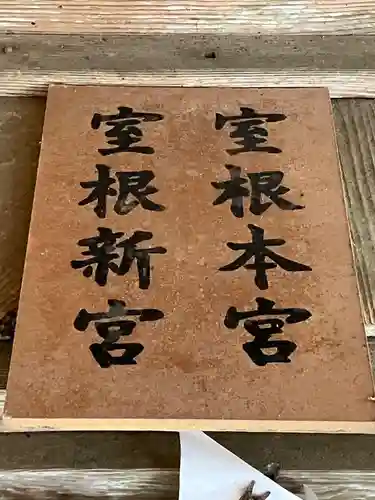 室根本宮
室根新宮